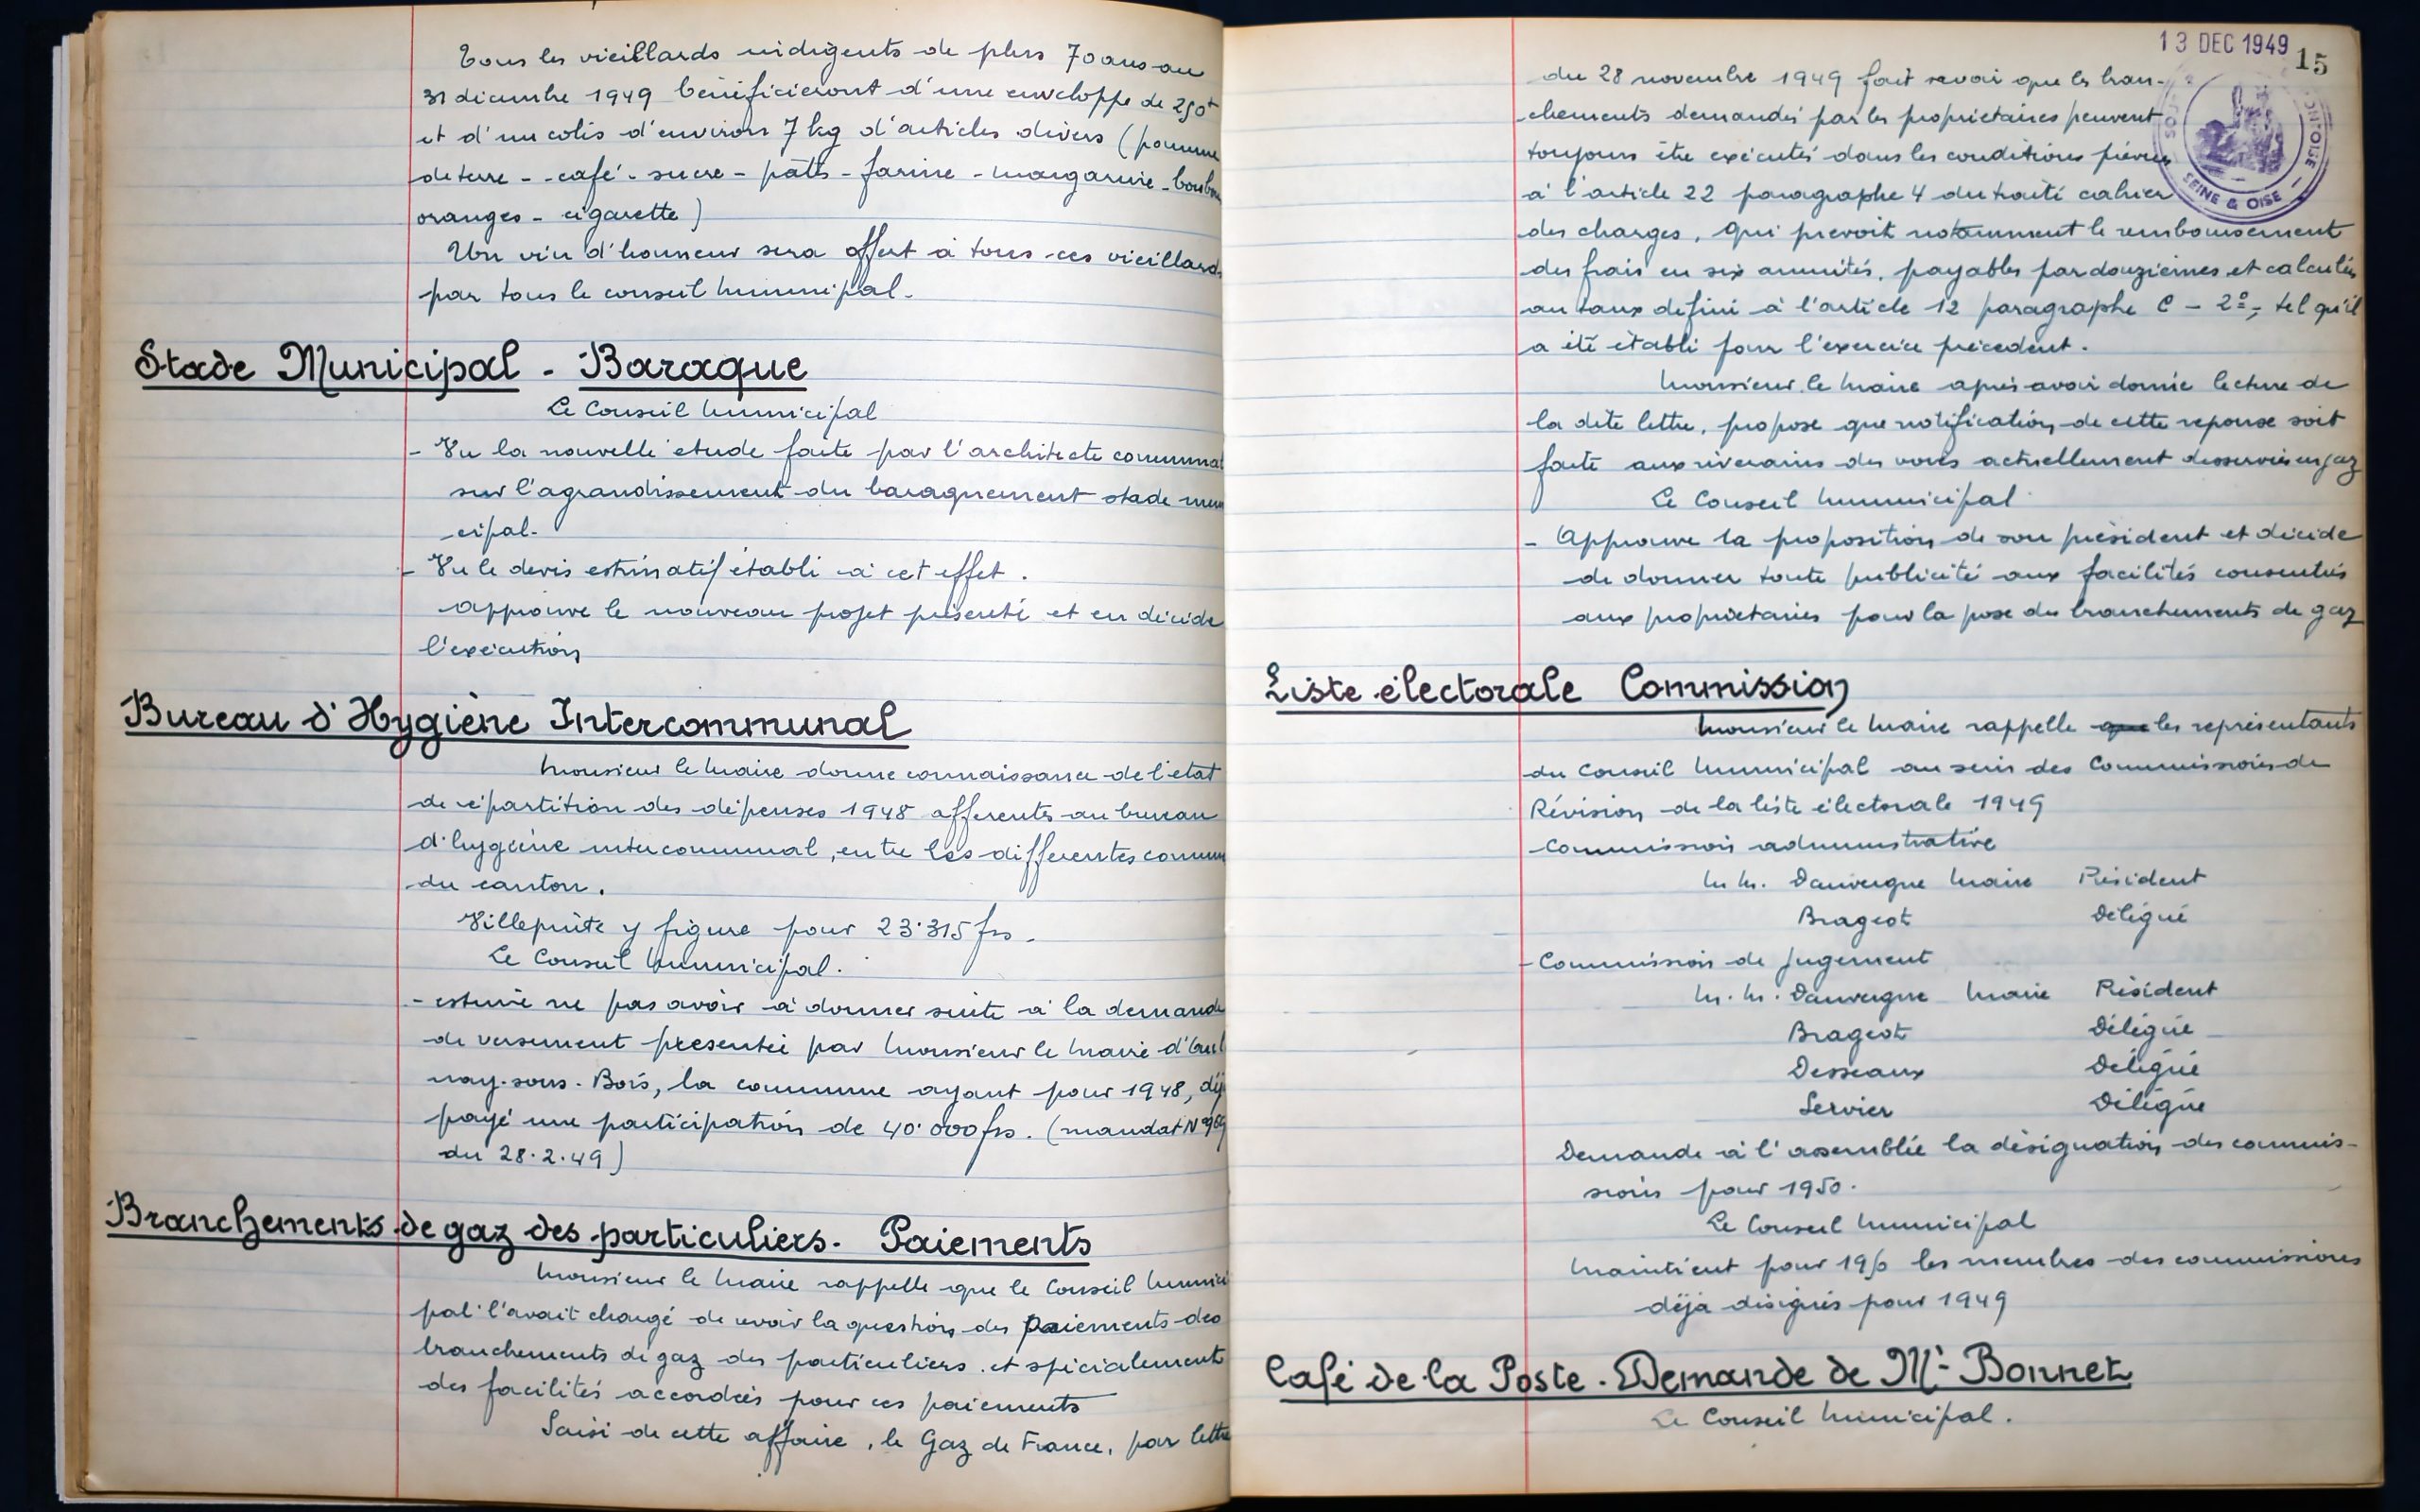 Tous les vieillards indigents de plus 70 ans au
31 décembre 1949 bénéficieront d'une enveloppe de 250f
et d'un colis d'environ 7 kg d'articles divers (pomme
de terre - - café - sucre - pâtes - farine - margarine - bonbon
oranges - cigarette)
Un vin d'honneur sera offert à tous ces vieillards
par tous le conseil municipal.
Stade Municipal - Baraque
Le Conseil Municipal
- Vu la nouvelle étude faite par l'architecte communal
sur l'agrandissement du baraquement stade muni
cipal.
- Vu le devis estimatif établi à cet effet.
approuve le nouveau projet présenté et en décide
l'exécution
Bureau d'Hygiène Intercommunal
Monsieur le Maire donne connaissance de l'état
de répartition des dépenses 1948 afferentes au bureau
d'hygiène intercommunal, entre les differentes commun
du canton.
Villepinte y figure pour 23.315 frs.
Le Conseil Municipal.
- estime ne pas avoir à donner suite à la demande
de versement presentée par Monsieur le Maire d'Aul
nay-sous-Bois, la commune ayant pour 1948, déjà
payé une participation de 40.000 frs. (mandat N°
du 28.2.49)
Branchements de gaz des particuliers. Paiements
Monsieur le Maire rappelle que le Conseil Munici
pal l'avait chargé de revoir la question des paiements des
branchements de gaz des particuliers et spécialement
des facilités accordées pour ces paiements
Saisi de cette affaire, le Gaz de France, par lettre
13 DEC 1949
15
SEINE & OISE
du 28 novembre 1949 fait savoir que les bran-
chements demandés par les propriétaires peuvent
toujours être exécutés dans les conditions prévues
à l'article 22 paragraphe 4 du traité cahier
des charges, qui prevoit notamment le remboursement
des frais en six annuités, payables par douzièmes et calculées
au taux défini à l'article 12 paragraphe C - 2°, tel qu'il
a été établi pour l'exercice précedent.
Monsieur le Maire après avoir donné lecture de
la dite lettre, propose que notification de cette reponse soit
faite aux riverains des voies actuellement desservies en gaz
Le Conseil Municipal
- Approuve la proposition de son président et décide
de donner toute publicité aux facilités consenties
aux propriétaires pour la pose des branchements de gaz
Liste électorale Commission
Monsieur le Maire rappelle que les représentants
du Conseil Municipal au sein des Commissions de
Révision de la liste électorale 1949
- Commission administrative
M.M. Dauvergne Maire Président
Brageot Délégué
- Commission de Jugement
M.M. Dauvergne Maire Président
Brageot Délégué
Desseaux Délégué
Servier Délégué
Demande à l'assemblée la désignation des commis-
sions pour 1950.
Le Conseil Municipal
Maintient pour 1950 les membres des commissions
déjà désignés pour 1949
Café de la Poste. Demande de Mr Bonnet
Le Conseil Municipal.